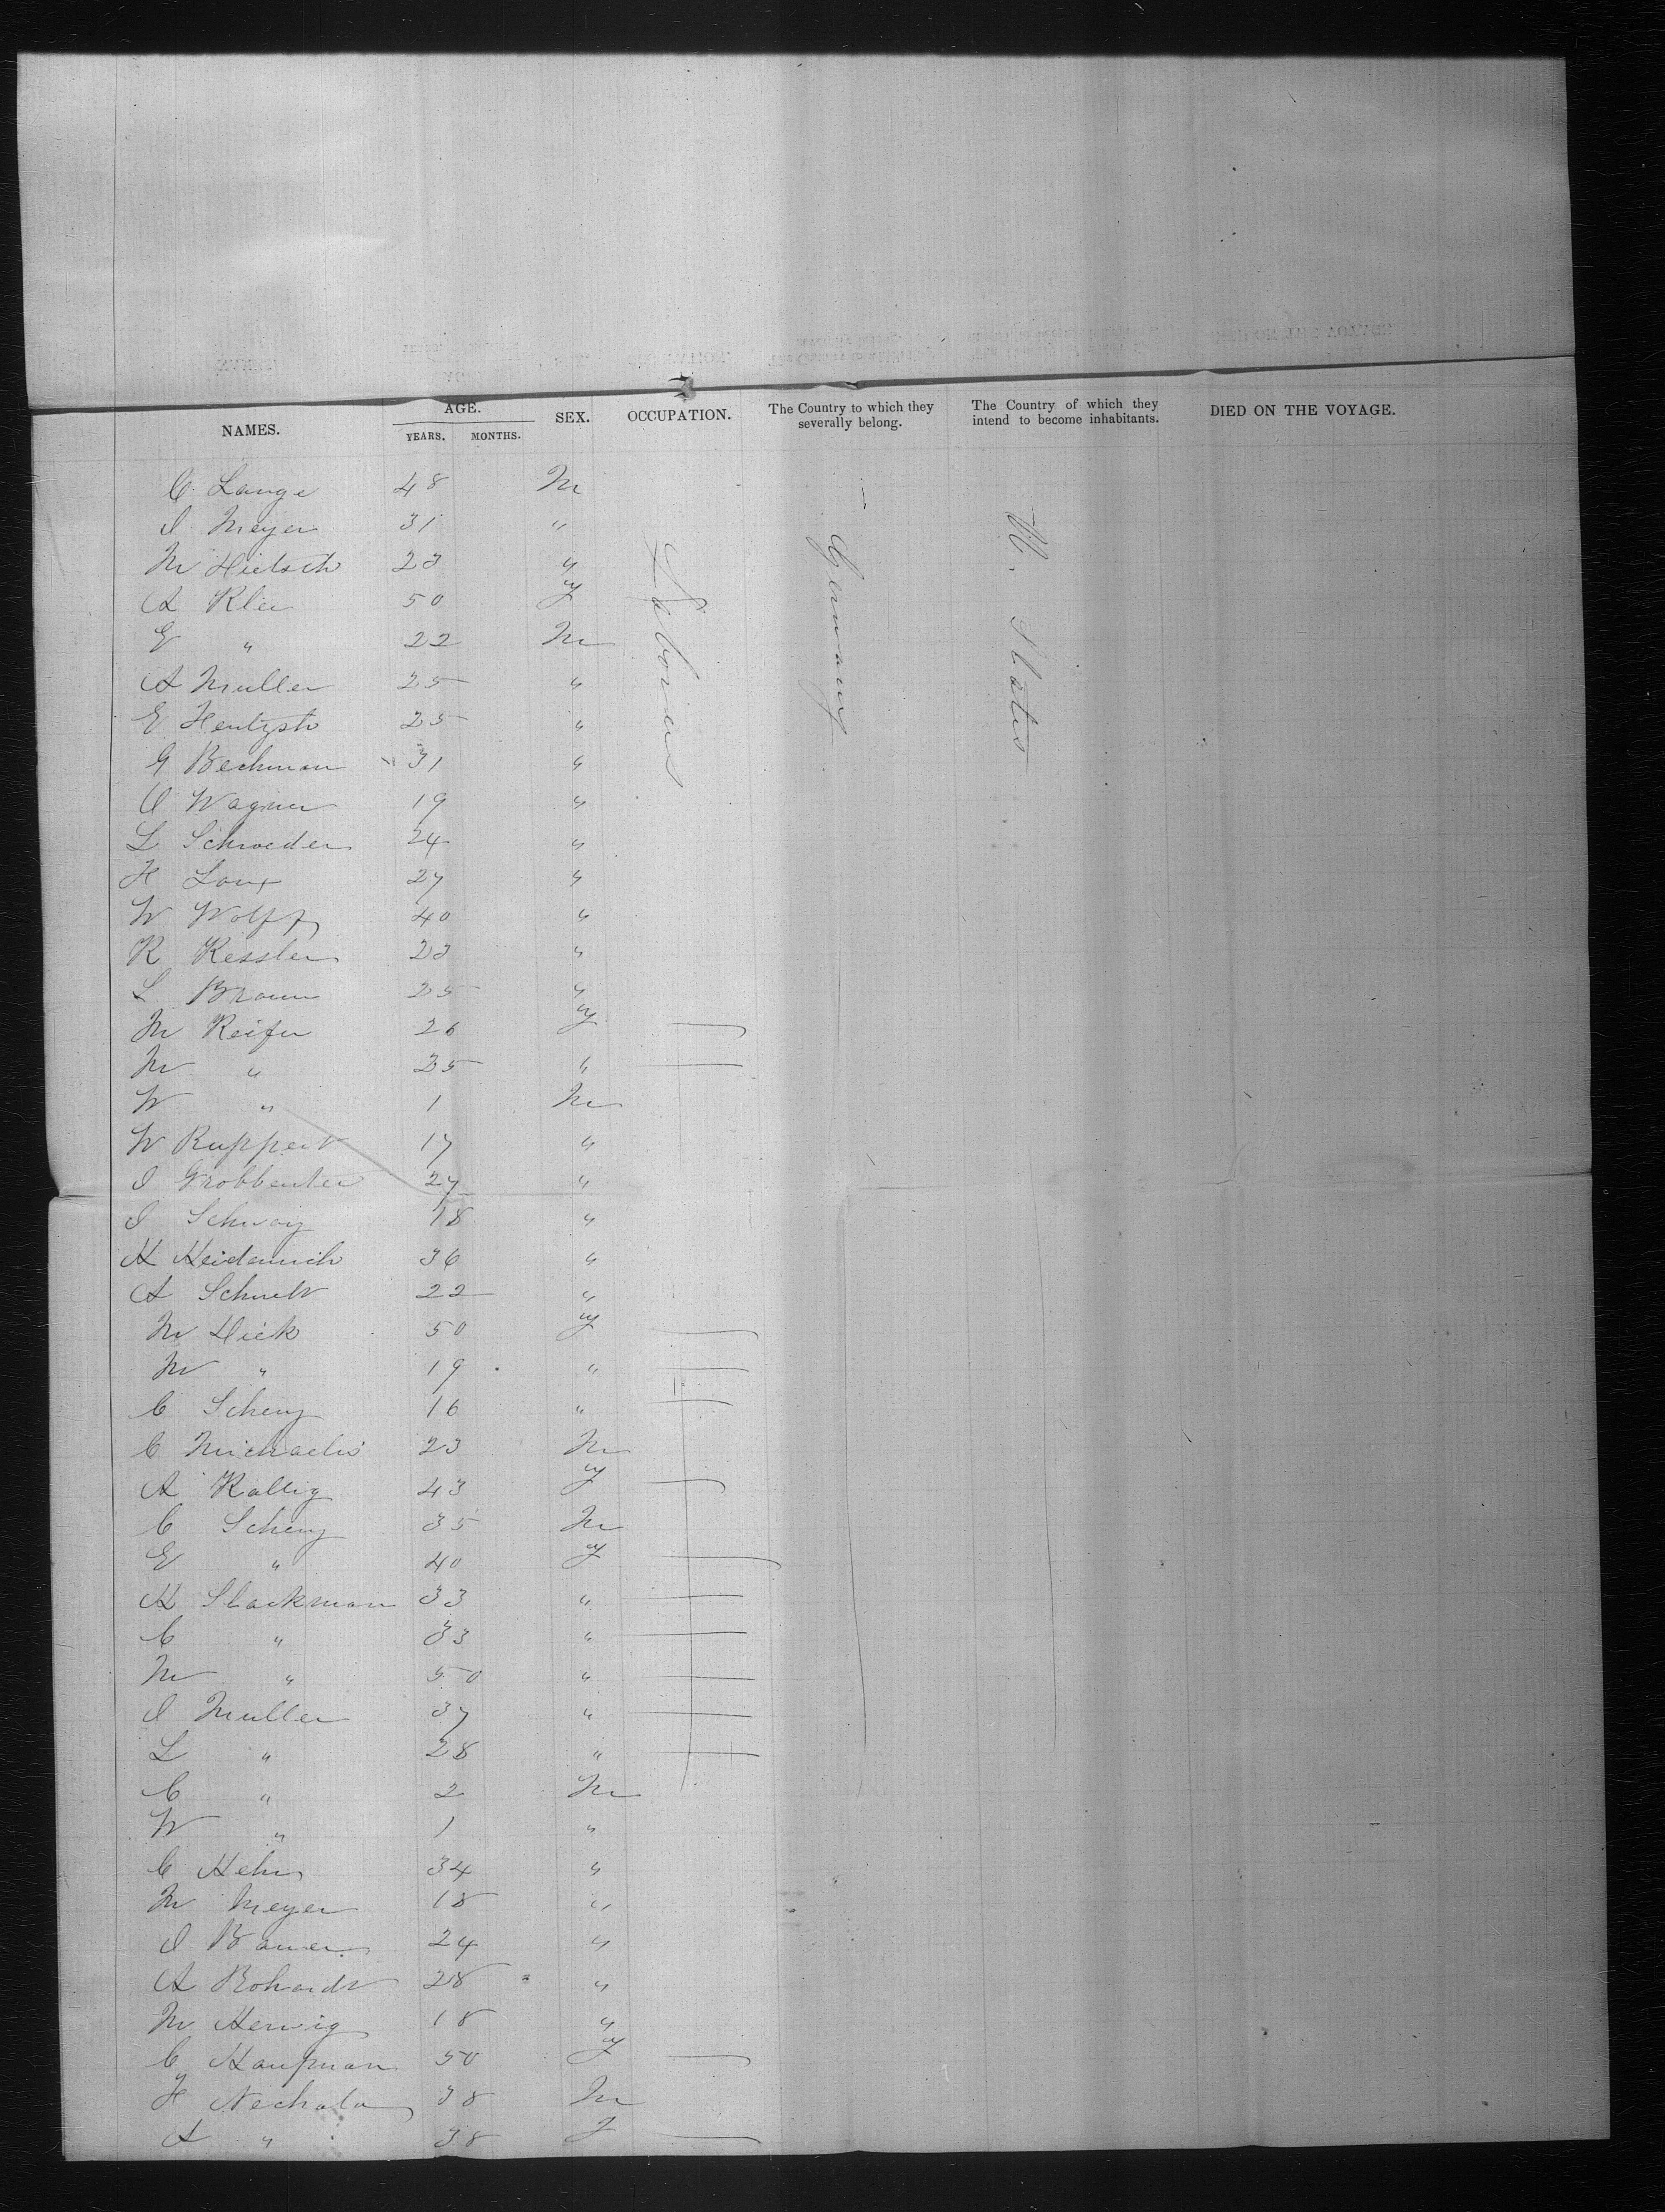 NAMES. AGE. YEARS. MONTHS. SEX. OCCUPATION. The Country to which they severally belong. The Country of which they intend to become inhabitants. DIED ON THE VOYAGE.
Laborers
Germany
U. States
C Lange 48 M
J Meyer 31 "
M 23 "
A Klei 50 F
E " 22 M
A Muller 25 "
E 25 "
G Beckman 31 "
C Wagner 19 "
L Schroeder 24 "
H 27 "
W Wolff 40 "
R Kessler 23 "
L Braun 25 "
M Keifer 26 F
M " 25 "
W " 1 M
W Ruppert 17 "
J 27 "
J 18 "
H Heidenrich 36 "
A 22 "
M Dick 50 F
M " 19 "
C Scheny 16 "
C Michaelis 23 M
A Kallig 43 F
C Scheny 35 M
E " 40 F
H Slackman 33 "
C " 33 "
M " 50 "
J Muller 37 "
L " 28 "
C " 2 M
W " 1 "
C Hehn 34 "
M Meyer 18 "
J Bauer 24 "
A Bohardt 28 "
M Herwig 18 "
C Kaufman 50 F
F 38 M
A " 38 F